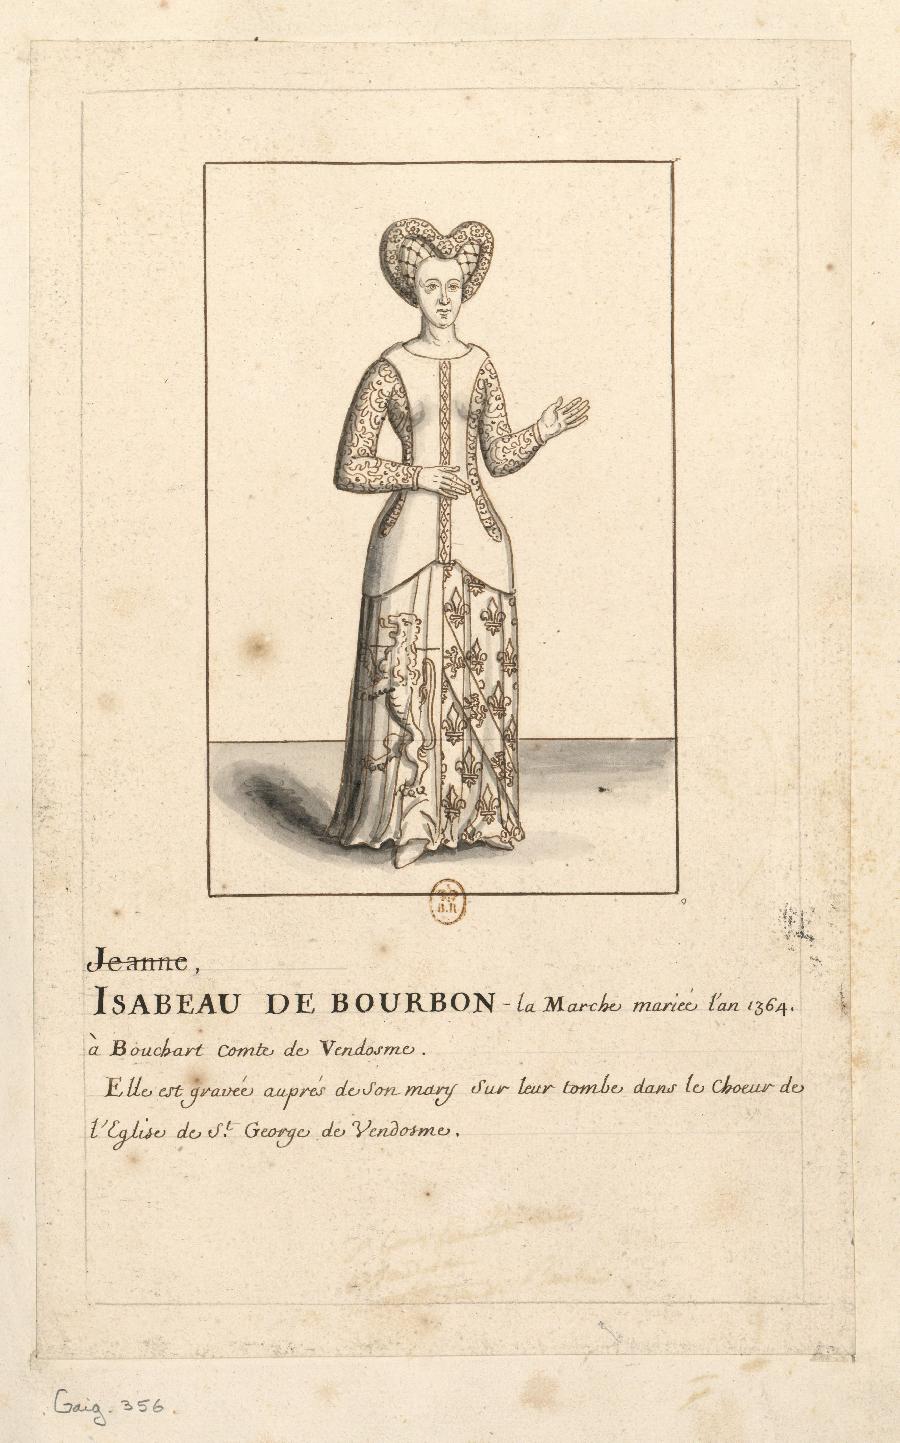 B.R
Jeanne,
ISABEAU DE BOURBON - la Marche mariée l'an 1364.
à Bouchart Comte de Vendosme.
Elle est gravée auprés de Son mary Sur leur tombe dans le Choeur de
l'Eglise de St. George de Vendosme.
Gaig. 356